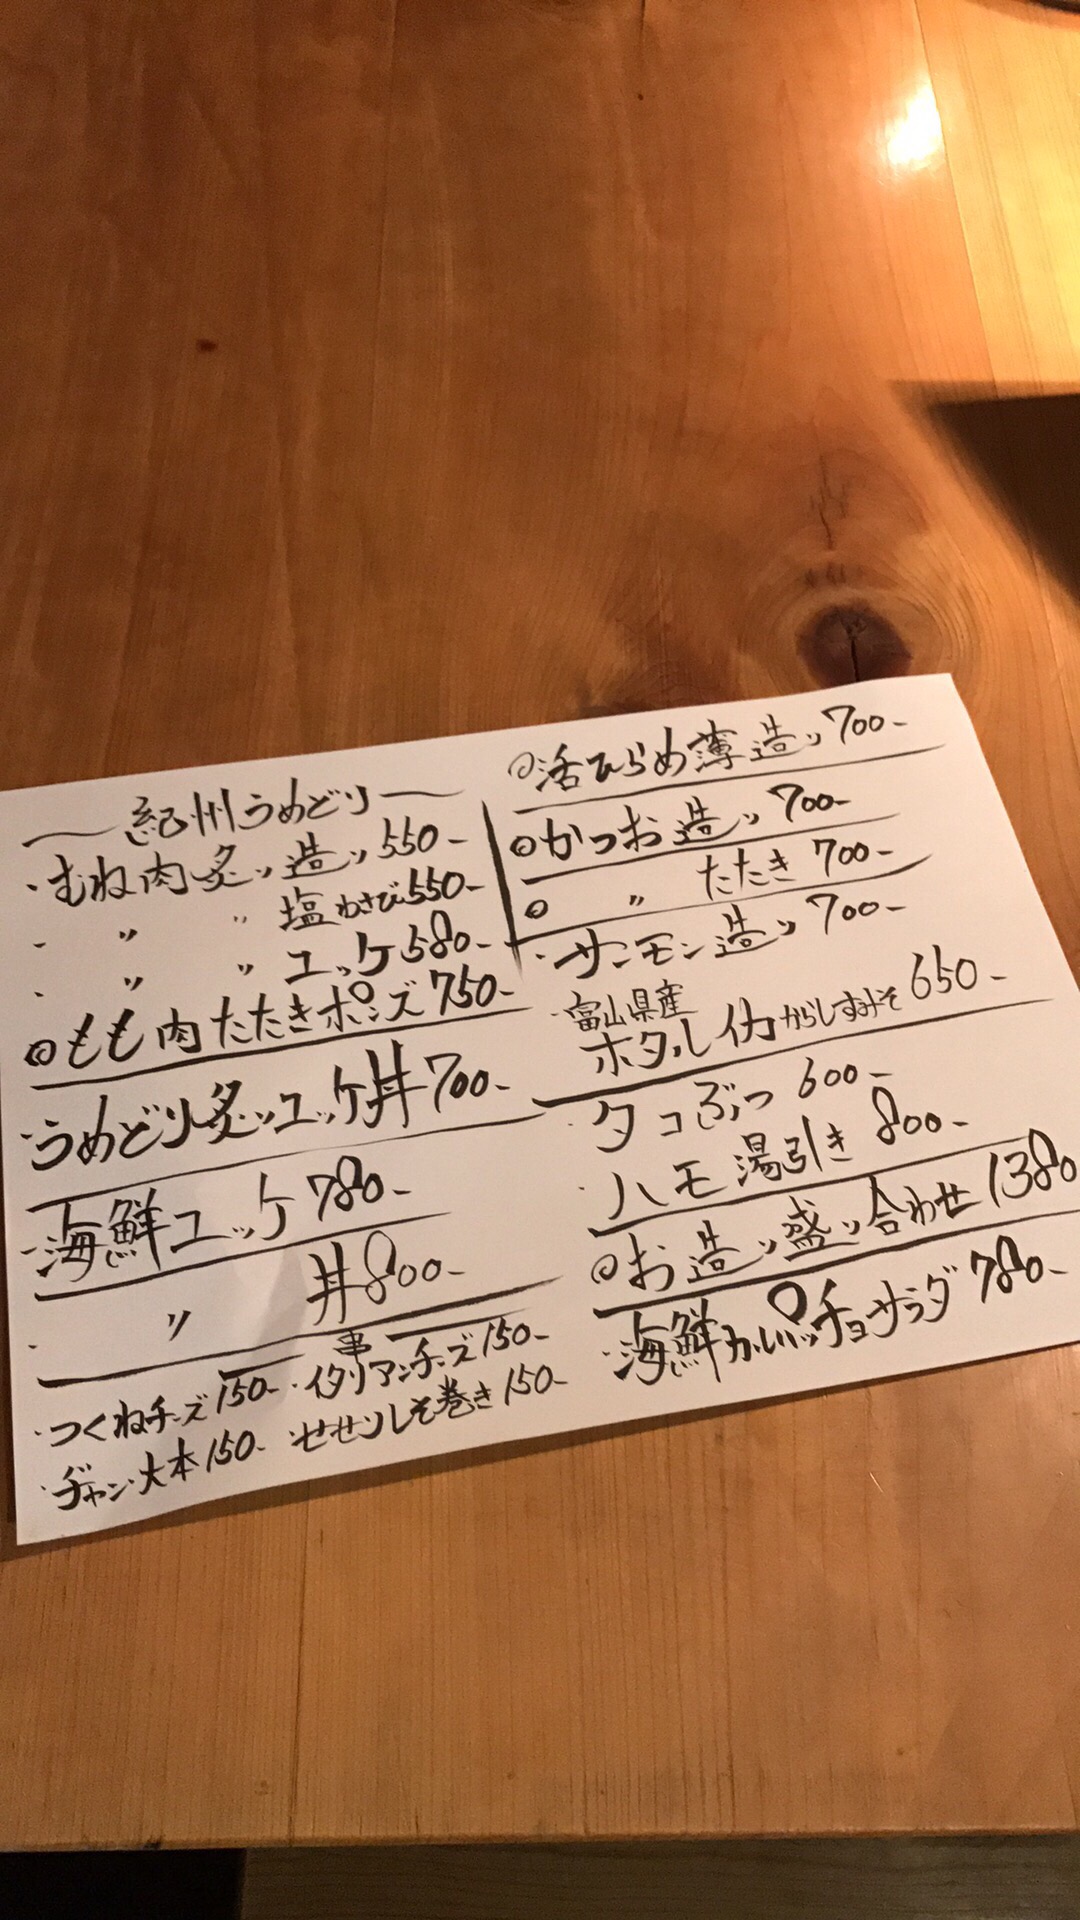 紀州うめどり
・むね肉炙り造り 550-
・〃 〃 塩わさび 550-
・〃 〃 ユッケ 580-
◎もも肉たたきポン酢 750-
・うめどり炙りユッケ丼 700-
・海鮮ユッケ 780-
・〃 丼 800-
串
・つくねチーズ 150- ・イタリアンチーズ 150-
・ヂャン大本 150- せせりしそ巻き 150-
◎活ひらめ薄造り 700-
◎かつお造り 700-
◎〃 たたき 700-
・サーモン造り 700-
・富山県産
ホタルイカからしすみそ 650-
・タコぶつ 600-
・ハモ湯引き 800-
◎お造り盛り合わせ 1380
・海鮮カルパッチョサラダ 780-